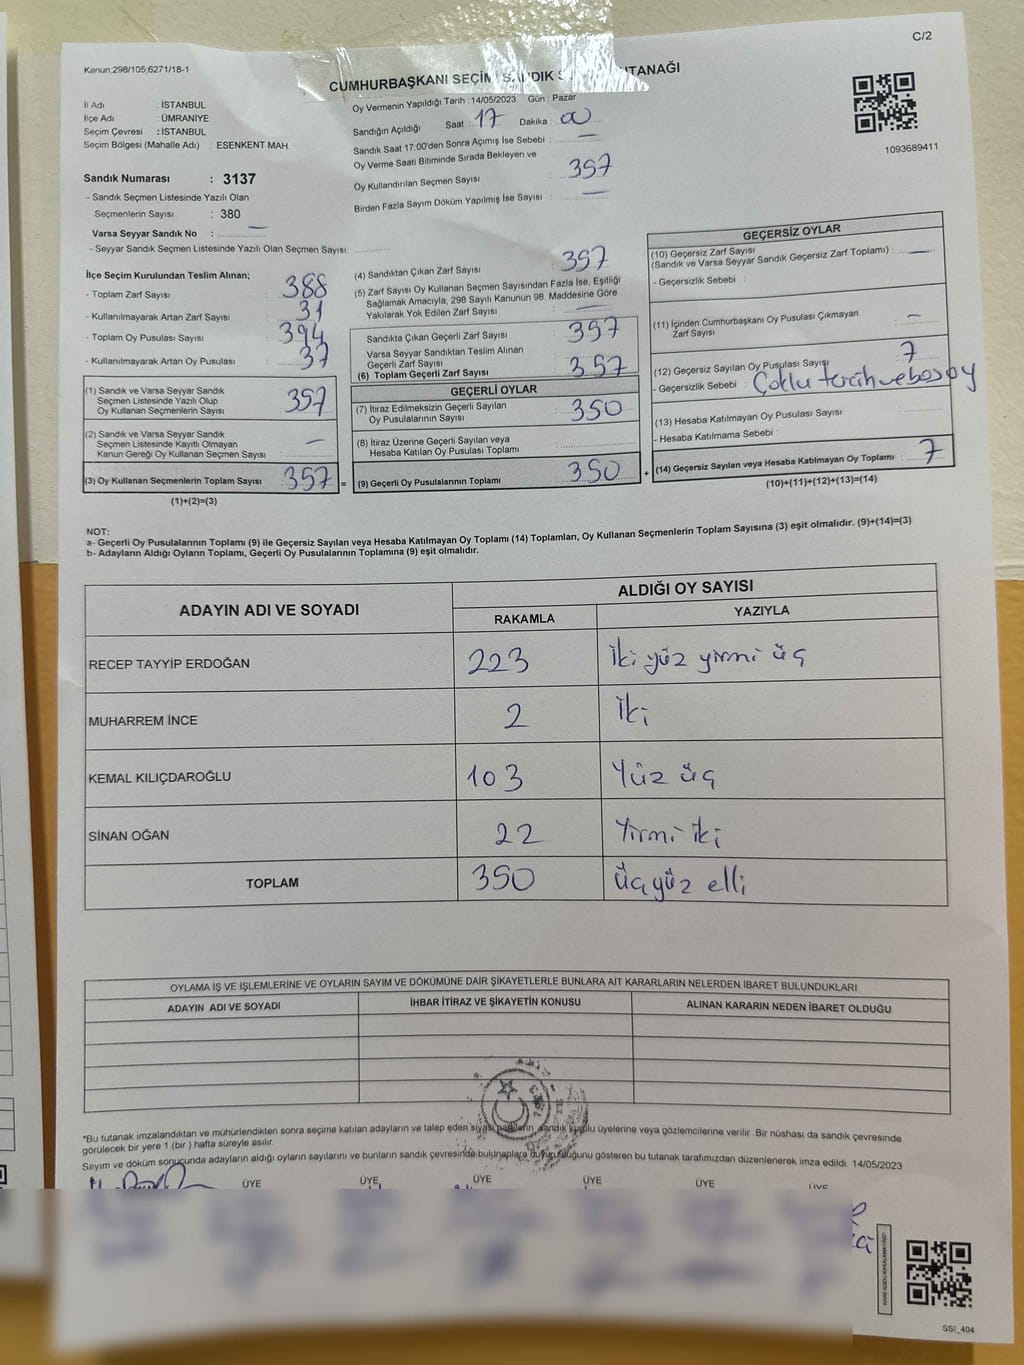 C/2
Kanun;298/105;6271/18-1
CUMHURBAŞKANI SEÇİM SANDIK TUTANAĞI
İl Adı : İSTANBUL
İlçe Adı : ÜMRANİYE
Seçim Çevresi : İSTANBUL
Seçim Bölgesi (Mahalle Adı) : ESENKENT MAH
Oy Vermenin Yapıldığı Tarih : 14/05/2023 Gün : Pazar
Sandığın Açıldığı Saat : 17 Dakika : 00
Sandık Saat 17:00'den Sonra Açımış İse Sebebi : —
Oy Verme Saati Bitiminde Sırada Bekleyen ve
Oy Kullandırılan Seçmen Sayısı : 357
Birden Fazla Sayım Döküm Yapılmış İse Sayısı : —
1093689411
Sandık Numarası : 3137
- Sandık Seçmen Listesinde Yazılı Olan
Seçmenlerin Sayısı : 380
Varsa Seyyar Sandık No : —
- Seyyar Sandık Seçmen Listesinde Yazılı Olan Seçmen Sayısı:
İlçe Seçim Kurulundan Teslim Alınan;
- Toplam Zarf Sayısı : 388
- Kullanılmayarak Artan Zarf Sayısı : 31
- Toplam Oy Pusulası Sayısı : 394
- Kullanılmayarak Artan Oy Pusulası : 37
(1) Sandık ve Varsa Seyyar Sandık
Seçmen Listesinde Yazılı Olup
Oy Kullanan Seçmenlerin Sayısı : 357
(2) Sandık ve Varsa Seyyar Sandık
Seçmen Listesinde Kayıtlı Olmayan
Kanun Gereği Oy Kullanan Seçmen Sayısı : —
(3) Oy Kullanan Seçmenlerin Toplam Sayısı : 357 =
(1)+(2)=(3)
(4) Sandıktan Çıkan Zarf Sayısı : 357
(5) Zarf Sayısı Oy Kullanan Seçmen Sayısından Fazla İse, Eşitliği
Sağlamak Amacıyla, 298 Sayılı Kanunun 98. Maddesine Göre
Yakılarak Yok Edilen Zarf Sayısı : —
Sandıkta Çıkan Geçerli Zarf Sayısı : 357
Varsa Seyyar Sandıktan Teslim Alınan
Geçerli Zarf Sayısı
(6) Toplam Geçerli Zarf Sayısı : 357
GEÇERLİ OYLAR
(7) İtiraz Edilmeksizin Geçerli Sayılan
Oy Pusulalarının Sayısı : 350
(8) İtiraz Üzerine Geçerli Sayılan veya
Hesaba Katılan Oy Pusulası Toplamı :
(9) Geçerli Oy Pusulalarının Toplamı : 350 +
GEÇERSİZ OYLAR
(10) Geçersiz Zarf Sayısı
(Sandık ve Varsa Seyyar Sandık Geçersiz Zarf Toplamı) : —
- Geçersizlik Sebebi :
(11) İçinden Cumhurbaşkanı Oy Pusulası Çıkmayan
Zarf Sayısı : —
(12) Geçersiz Sayılan Oy Pusulası Sayısı : 7
- Geçersizlik Sebebi : Çoklu tercih ve boş oy
(13) Hesaba Katılmayan Oy Pusulası Sayısı :
- Hesaba Katılmama Sebebi :
(14) Geçersiz Sayılan veya Hesaba Katılmayan Oy Toplamı : 7
(10)+(11)+(12)+(13)=(14)
NOT:
a- Geçerli Oy Pusulalarının Toplamı (9) ile Geçersiz Sayılan veya Hesaba Katılmayan Oy Toplamı (14) Toplamları, Oy Kullanan Seçmenlerin Toplam Sayısına (3) eşit olmalıdır. (9)+(14)=(3)
b- Adayların Aldığı Oyların Toplamı, Geçerli Oy Pusulalarının Toplamına (9) eşit olmalıdır.
ADAYIN ADI VE SOYADI
ALDIĞI OY SAYISI
RAKAMLA YAZIYLA
RECEP TAYYİP ERDOĞAN 223 İki yüz yirmi üç
MUHARREM İNCE 2 İki
KEMAL KILIÇDAROĞLU 103 Yüz üç
SİNAN OĞAN 22 Yirmi iki
TOPLAM 350 Üçyüz elli
OYLAMA İŞ VE İŞLEMLERİNE VE OYLARIN SAYIM VE DÖKÜMÜNE DAİR ŞİKAYETLERLE BUNLARA AİT KARARLARIN NELERDEN İBARET BULUNDUKLARI
ADAYIN ADI VE SOYADI İHBAR İTİRAZ VE ŞİKAYETİN KONUSU ALINAN KARARIN NEDEN İBARET OLDUĞU
*Bu tutanak imzalandıktan ve mühürlendikten sonra seçime katılan adayların ve talep eden siyasi partilerin, sandık kurulu üyelerine veya gözlemcilerine verilir. Bir nüshası da sandık çevresinde
görülecek bir yere 1 (bir ) hafta süreyle asılır.
Sayım ve döküm sonucunda adayların aldığı oyların sayılarını ve bunların sandık çevresinde bulunanlara duyurulduğunu gösteren bu tutanak tarafımızdan düzenlenerek imza edildi. 14/05/2023
ÜYE ÜYE ÜYE ÜYE ÜYE ÜYE
SSI_404